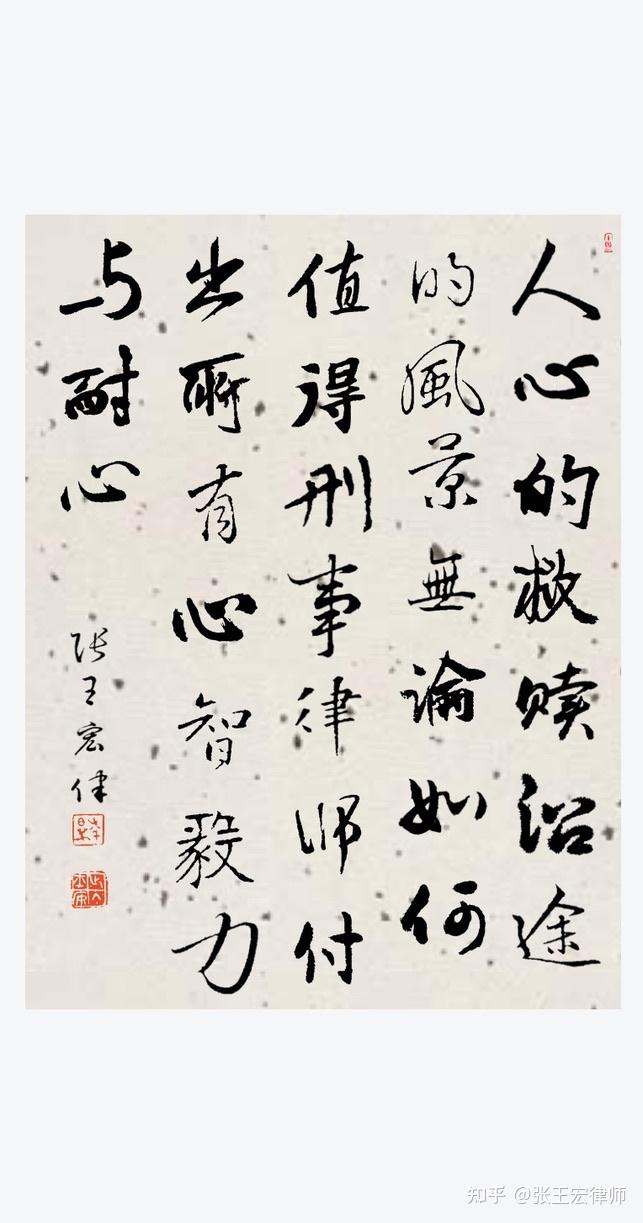 人心的救赎沿途
的風景無論如何
值得刑事律师付
出所有心智毅力
与耐心
张王宏律
知乎 @张王宏律师